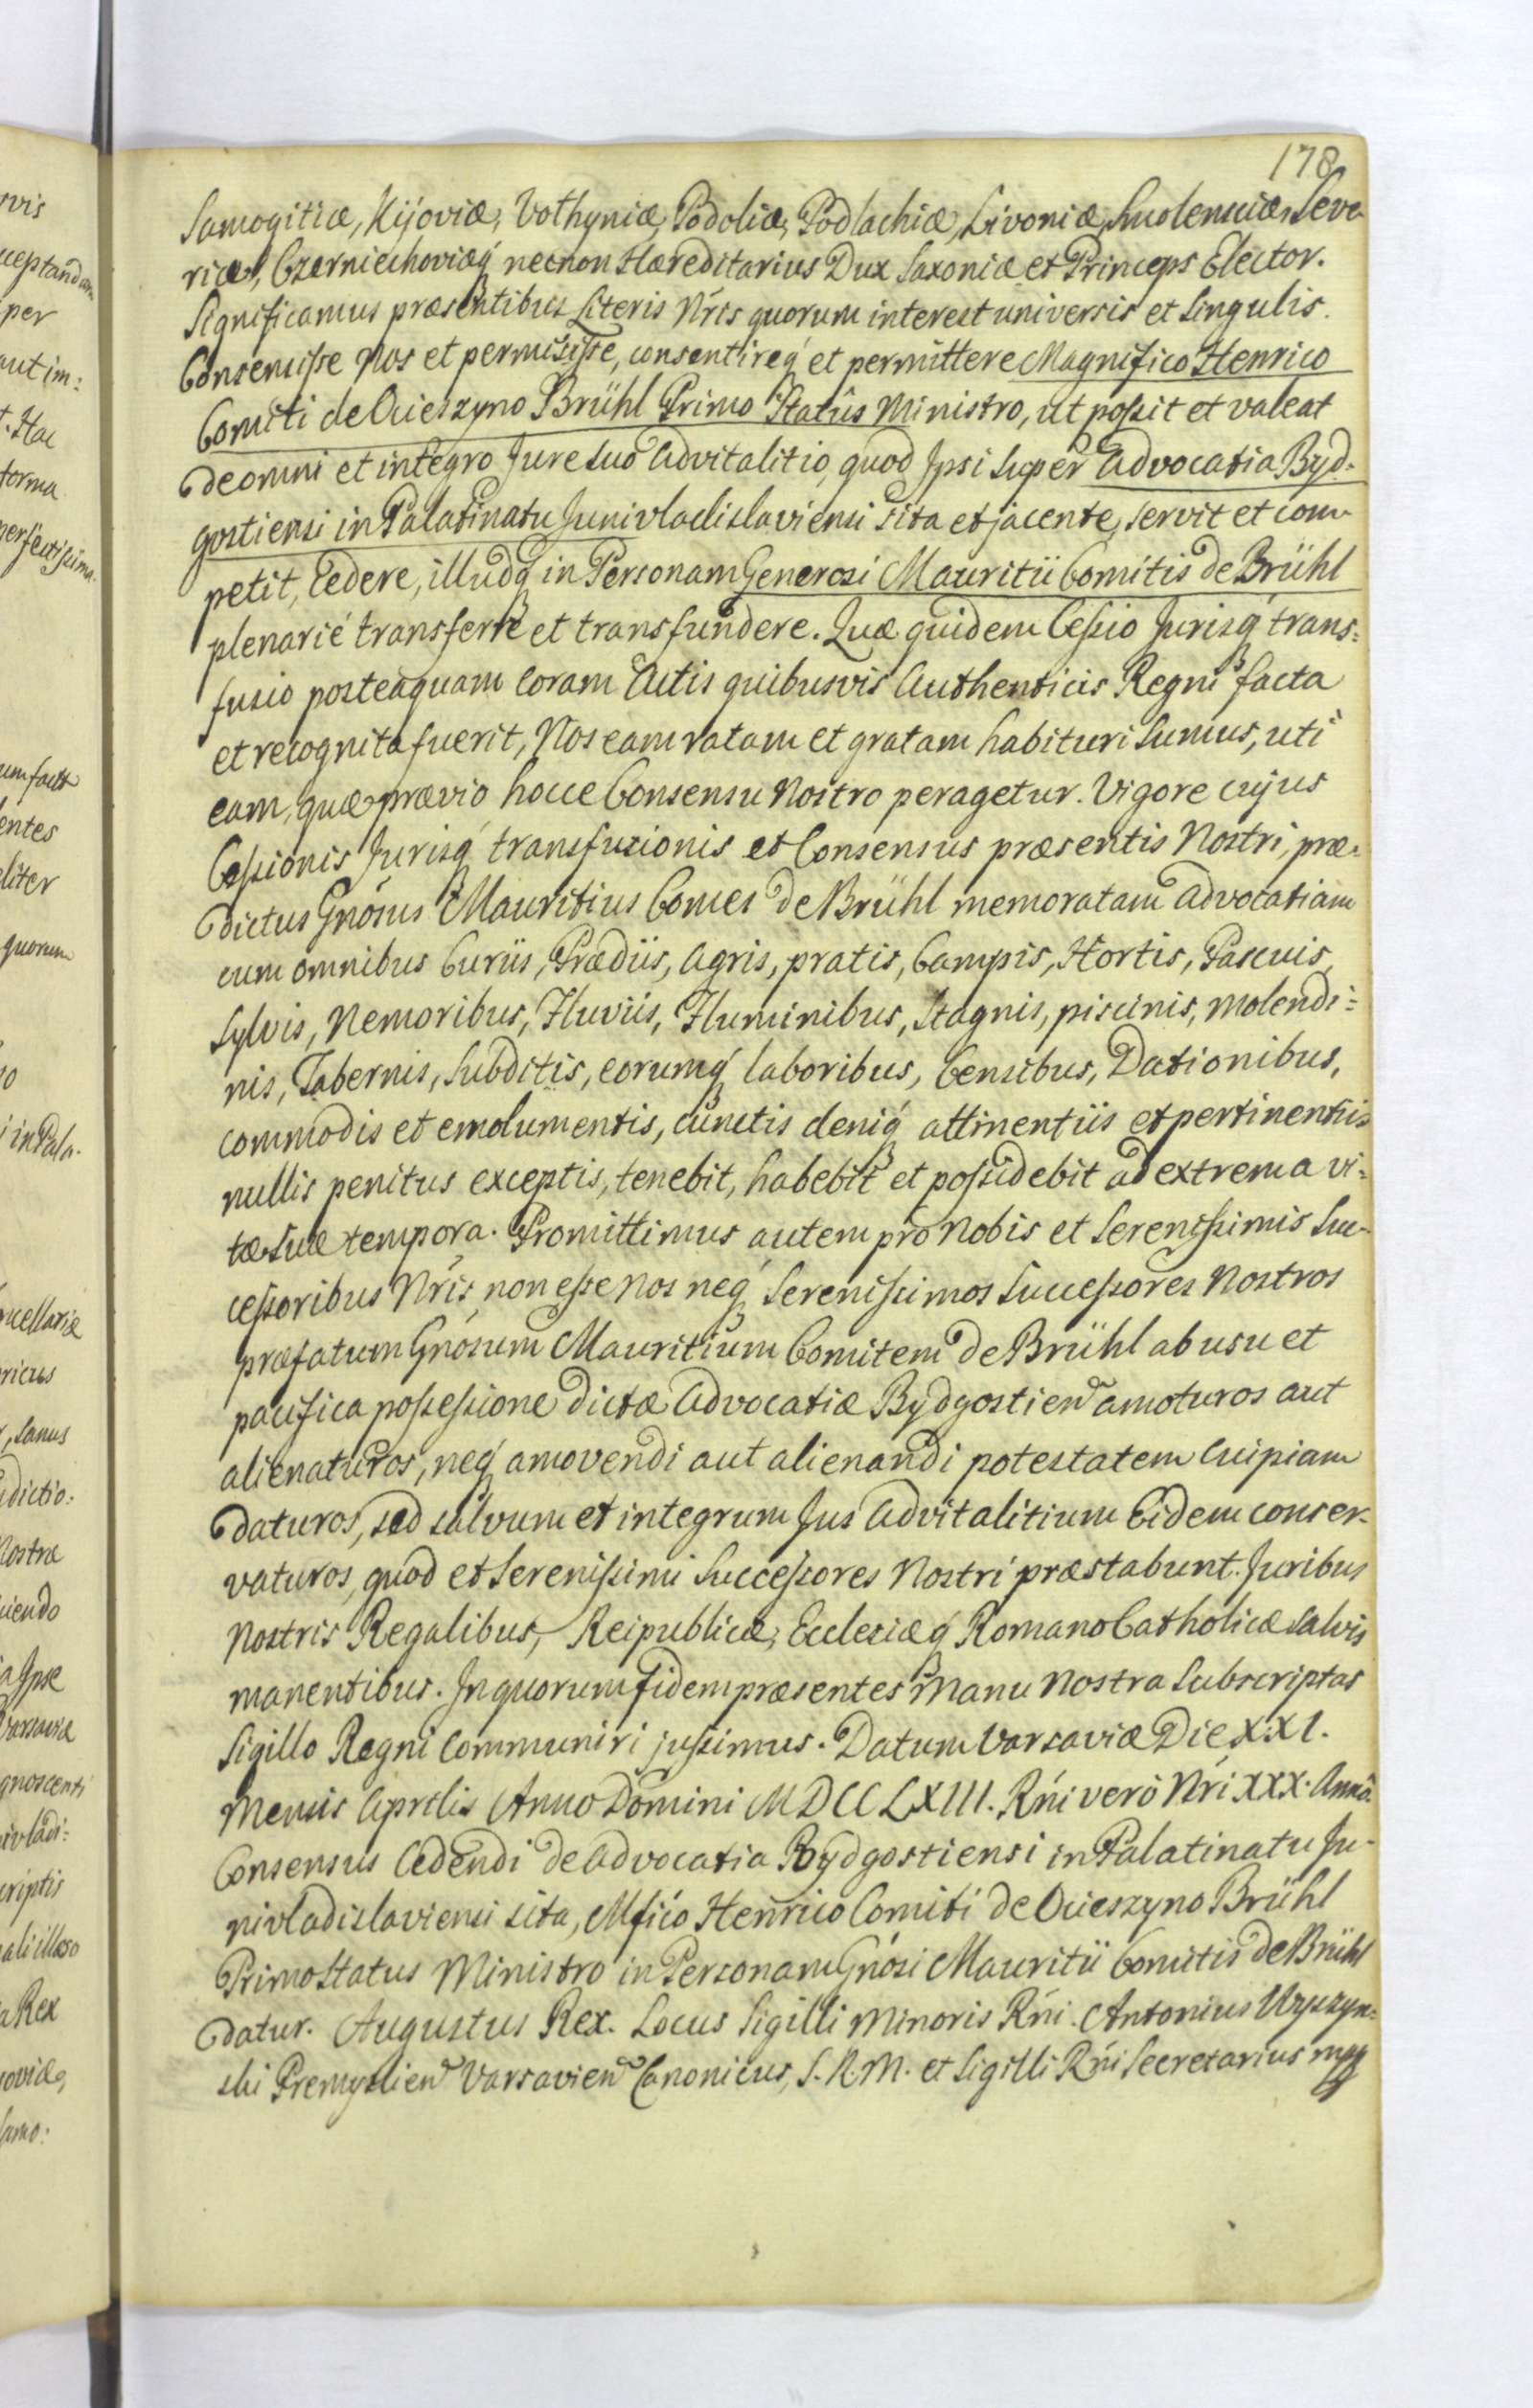 178
Samogitiæ, Kijoviæ, Volhyniæ, Podoliæ, Podlachiæ, Livoniæ, Smolensciæ, Seve-
riæ, Czerniechoviæq́ necnon Hæreditarius Dux Saxoniæ et Princeps Elector.
Significamus præsentibus Literis Nr̃is quorum interest universis et Singulis.
Consensisse Nos et permisisse, consentireq́ et permittere Magnifico Henrico
Comiti de Ocieszyno Brühl Primo Statûs Ministro, ut possit et valeat
de omni et integro Jure suo advitalitio, quod Ipsi super advocatia Byd-
gostiensi in Palatinatu Junivladislaviensi sita et jacente, servit et com-
petit, Cedere, illudq́ in Personam Generosi Mauritii Comitis de Brühl
plenarié transferre et transfundere. Quæ quidem Cessio Jurisq́ trans=
fusio posteaquam coram Actis quibusvis Authenticis Regni facta
et recognita fuerit, Nos eam ratam et gratam habituri sumus, uti
eam, quæ prævio hocce Consensu Nostro peragetur. Vigore cujus
Cessionis Jurisq́ transfusionis et Consensus præsentis Nostri, præ-
dictus Gnõsus Mauritius Comes de Brühl memoratam advocatiam
cum omnibus Curiis, Prædiis, agris, pratis, Campis, Hortis, Pascuis,
Sylvis, Nemoribus, Fluviis, Fluminibus, Stagnis, piscinis, molendi=
nis, Tabernis, Subditis, eorumq́ laboribus, Censibus, Dationibus,
commodis et emolumentis, cunctis deniq́ attinentiis et pertinentiis
nullis penitus exceptis, tenebit, habebit et possidebit ad extrema vi=
tæ suæ tempora. Promittimus autem pro Nobis et Serenissimis Suc-
cessoribus Nr̃is, non esse Nos neq́ Serenissimos Successores Nostros
præfatum Gnõsum Mauritium Comitem de Brühl ab usu et
pacifica possessione dictæ advocatiæ Bydgostien̄ amoturos aut
alienaturos, neq́ amovendi aut alienandi potestatem cuipiam
daturos, sed salvum et integrum Jus advitalitium Eidem conser-
vaturos, quod et Serenissimi Successores Nostri præstabunt. Juribus
Nostris Regalibus, Reipublicæ, Ecclesiæq́ Romano Catholicæ salvis
manentibus. In quorum fidem præsentes Manu Nostra Subscriptas
Sigillo Regni Communiri jussimus. Datum Varsaviæ Die XXI.
Mensis Aprilis Anno Domini MDCCLXIII. Rñi verò Nr̃i XXX. Annô.
Consensus Cedendi de advocatia Bydgostiensi in Palatinatu Ju-
nivladislaviensi sita, Mfico Henrico Comiti de Ocieszyno Brühl
Primo Status Ministro in Personam Gnõsi Mauritii Comitis de Brühl
datur. Augustus Rex. Locus Sigilli Minoris Rñi. Antonius
Premyslien̄ Varsavien̄ Canonicus, S. R. M. et Sigilli Rñi Secretarius mpp